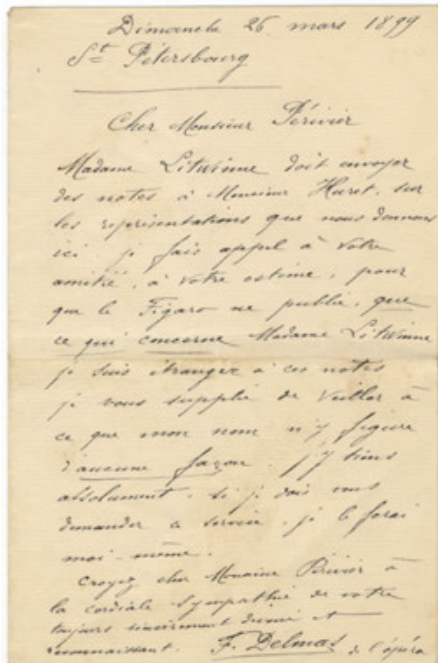 Dimanche 26 mars 1899
St Pétersbourg
Cher Monsieur Périvier
Madame Litwinne doit envoyer
des notes à Monsieur Huret, sur
les représentations que nous donnons
ici je fais appel à votre
amitié, à votre estime, pour
que le Figaro ne publie, que
ce qui concerne Madame Litwinne
je suis étranger à ces notes
je vous supplie de veiller à
ce que mon nom n'y figure
d'aucune façon. j'y tiens
absolument, si je dois vous
demander ce service, je le ferai
moi-même.
Croyez cher Monsieur Périvier à
la cordiale sympathie de votre
toujours sincèrement dévoué et
reconnaissant. F. Delmas de l'opéra